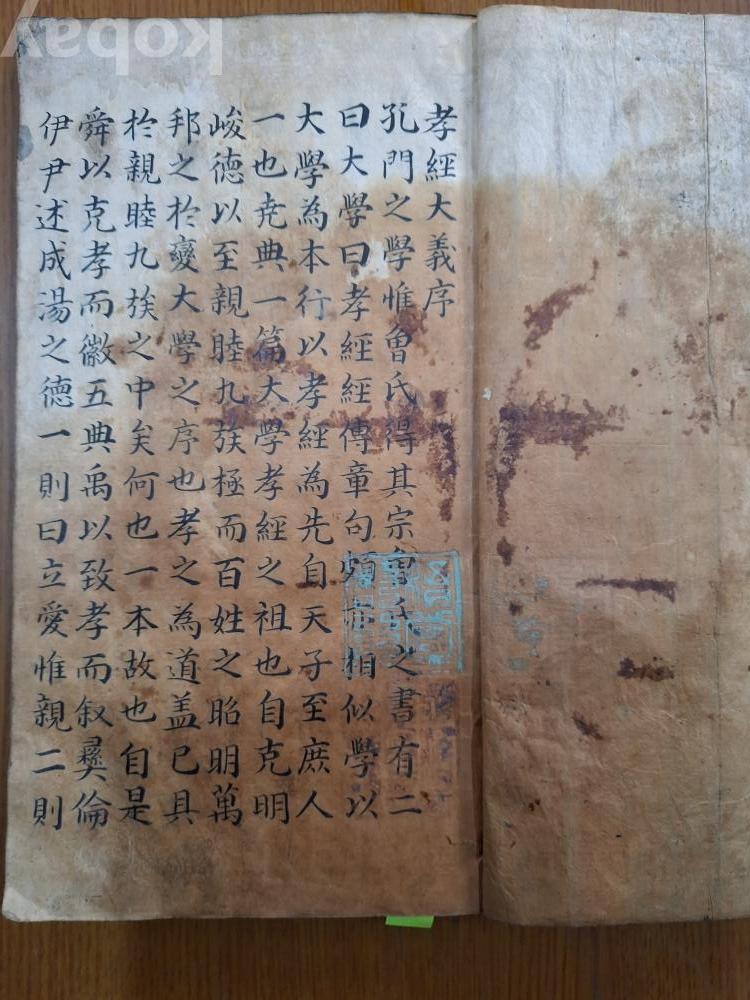 孝經大義序
孔門之學惟曾氏得其宗曾氏之書有二
曰大學曰孝經經傳章句頗亦相似學以
大學為本行以孝經為先自天子至庶人
一也尭典一篇大學孝經之祖也自克明
峻德以至親睦九族極而百姓之昭明萬
邦之於變大學之序也孝之為道盖已具
於親睦九族之中矣何也一本故也自是
舜以克孝而徽五典禹以致孝而叙彛倫
伊尹述成湯之德一則曰立愛惟親二則
kobay